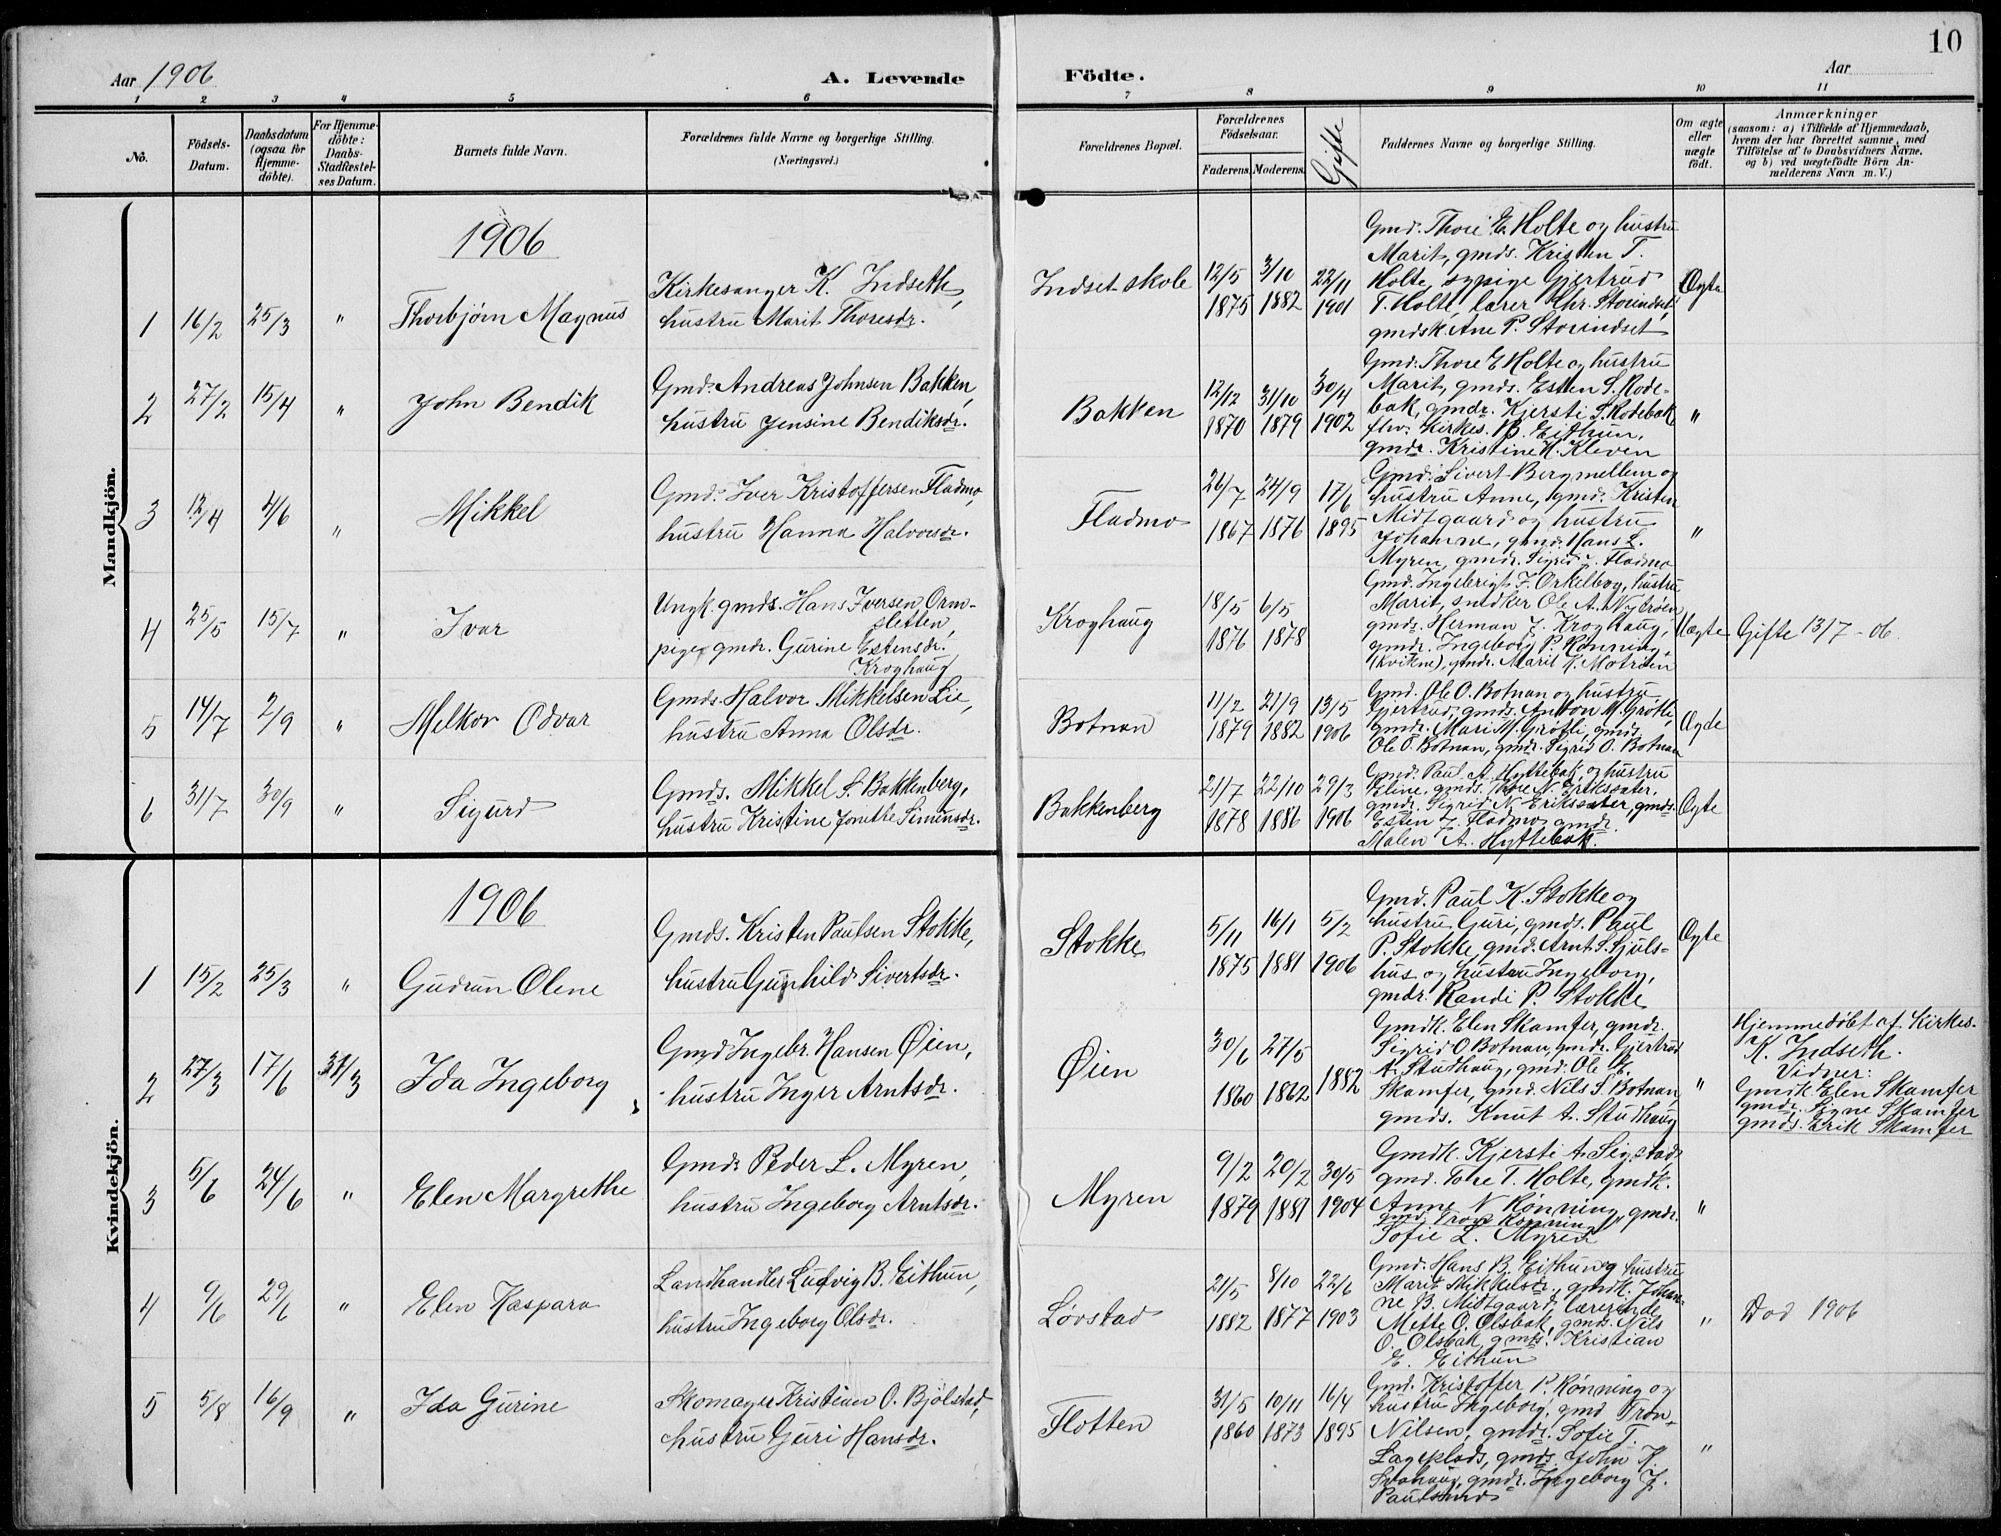 10
Aar 1906
A. Levende Fødte.
Aar
1 2 3 4 5 6 7 8 9 10 11
No.
Fødsels-Datum.
Daabsdatum (ogsaa for Hjemme-døbte).
For Hjemme-døbte: Daabs-Stadfæstel-ses Datum.
Barnets fulde Navn.
Forældrenes fulde Navne og borgerlige Stilling. (Næringsvei.)
Forældrenes Bopæl.
Forældrenes Fødselsaar.
Faderens. Moderens.
Gifte
Faddernes Navne og borgerlige Stilling.
Om ægte eller uægte født.
Anmærkninger
(saasom: a) i Tilfælde af Hjemmedaab,
hvem der har forrettet samme, med
Tilføielse af to Daabsvidners Navne,
og b) ved uægtefødte Børn An-
melderens Navn m. V.)
Mandkjön.
1906
1 16/2 25/3 " Thorbjørn Magnus
Kirkesanger K. Indseth,
hustru Marit Thoresdr.
Indset skole
12/5 1875 3/10 1882 22/11 1901
Gmd. Thore E. Holte og hustru
Marit, gmds. Kristen T.
Holte, sypige Gjertrud
T. Holte, lærer Chr. Storindset,
gmdsk. Ane P. Storindset
Ægte
2 27/2 15/4 " John Bendik
Gmd. Andreas Johnsen Bakken,
hustru Jensine Bendiksdr.
Bakken
12/12 1870 31/10 1879 30/4 1902
Gmd. Thore E Holte og hustru
Marit, gmds. Esten S. Rode-
bak, gmdr. Kjersti S. Rodebak
fhv. kirkes. B. Eithun,
gmdr. Kristine K. Kleven
"
3 12/4 4/6 " Mikkel
Gmd. Iver Kristoffersen Fladmo,
hustru Hanna Halvorsdr.
Fladmo
26/7 1867 24/9 1876 17/6 1895
Gmd. Sivert Bergmellem og
hustru Anne, gmd. Kristen
Midtgaard og hustru
Johanne, gmd. Hans L.
Myren, gmdr. Sigrid J. Fladmo
"
4 25/5 15/7 " Ivar
Ungk. gmds. Hans Iversen Orm-
sletten,
pige gmdr. Gurine Estensdr.
Kroghaug
Kroghaug
18/5 1876 6/5 1878
Gmd. Ingebrigt J. Orkelbog, hustru
Marit, snedker Ole A. Nytrøen,
gmds. Herman J. Kroghaug,
gmdr. Ingeborg P. Rønning,
(Kvikne), gmdr. Marit K. Motrøen
Uægte Gifte 13/7 - 06.
5 14/7 2/9 " Melkor Odvar
Gmds. Halvor Mikkelsen Lie,
hustru Anna Olsdr.
Botnan
11/2 1879 21/9 1882 13/5 1906
Gmd. Ole O. Botnan og hustru
Gjertrud, gmds. Anton M. Grøtli,
gmdr. Mari M. Grøtli, gmds.
Ole O. Botnan, gmdr. Sigrid O. Botnan
Ægde
6 31/7 30/9 " Sigurd
Gmds. Mikkel S. Bakkenberg,
hustru Kristine Jonette Simensdr.
Bakkenberg
21/7 1878 22/10 1886 29/3 1906
Gmd. Paul A. Hyttebak, og hustru
Eline, gmds. Thore N. Eriksæter,
gmdr. Sigrid N. Eriksæter, gmds.
Esten J. Fladmo, gmdr.
Malen A. Hyttebak.
Ægte
Kvindekjön.
1906
1 15/2 25/3 " Gudrun Olene
Gmds. Kristen Paulsen Stokke,
hustru Gunhild Sivertsdr.
Stokke
5/11 1875 16/1 1881 5/2 1906
Gmd. Paul K. Stokke og
hustru Guri, gmds. Paul
P. Stokke, gmd. Arnt S. Sjuls-
hus og hustru Ingeborg,
gmdr. Randi P. Stokke
Ægte
2 27/3 17/6 31/3 Ida Ingeborg
Gmd Ingebr. Hansen Øien,
hustru Inger Arntsdr.
Øien
30/6 1860 27/5 1862 1882
Gmdk. Elen Skamfer, gmdr.
Sigrid O. Botnan, gmdr. Gjertrud
A. Studhaug, gmd. Ole E.
Skamfer, gmd. Nils S. Botnan,
gmds. Knut A. Studhaug
"
Hjemmedøbt af Kirkes.
K. Indseth.
Vidner:
Gmdk Elen Skamfer
gmdr. Signe Skamfer
gmds. Erik Skamfer
3 5/6 24/6 " Elen Margrethe
Gmds Peder L. Myren,
hustru Ingeborg Arntsdr.
Myren
9/2 1879 20/2 1881 30/5 1904
Gmdk. Kjersti A Sigstad
gmd. Tore T. Holte, gmdk.
Anne N Rønning, gmdr.
gmd. Tron Rønning
Sofie L. Myren
"
4 9/6 29/6 " Elen Kaspara
Landhandler Ludvig B. Eithun,
hustru Ingeborg Olsdr.
Løvstad
21/5 1882 8/10 1877 22/6 1903
Gmd. Hans B. Eithun og hustru
Marit Mikkelsdr., gmdk. Johan-
ne B. Midtgaard, lærerinde
Mette O. Olsbak, gmds. Nils
O. Olsbak, gmds. Kristian
E. Eithun
" Død 1906
5 5/8 16/9 " Ida Gurine
Skomager Kristian O. Bjølstad,
hustru Guri Hansdr.
Flotten
31/5 1860 10/11 1873 16/4 1895
Gmd. Kristoffer P. Rønning og
hustru Ingeborg, gmd Tron
Nilsen, gmdr. Sofie T.
gmds. John K.
gmdr. Ingeborg J.
"